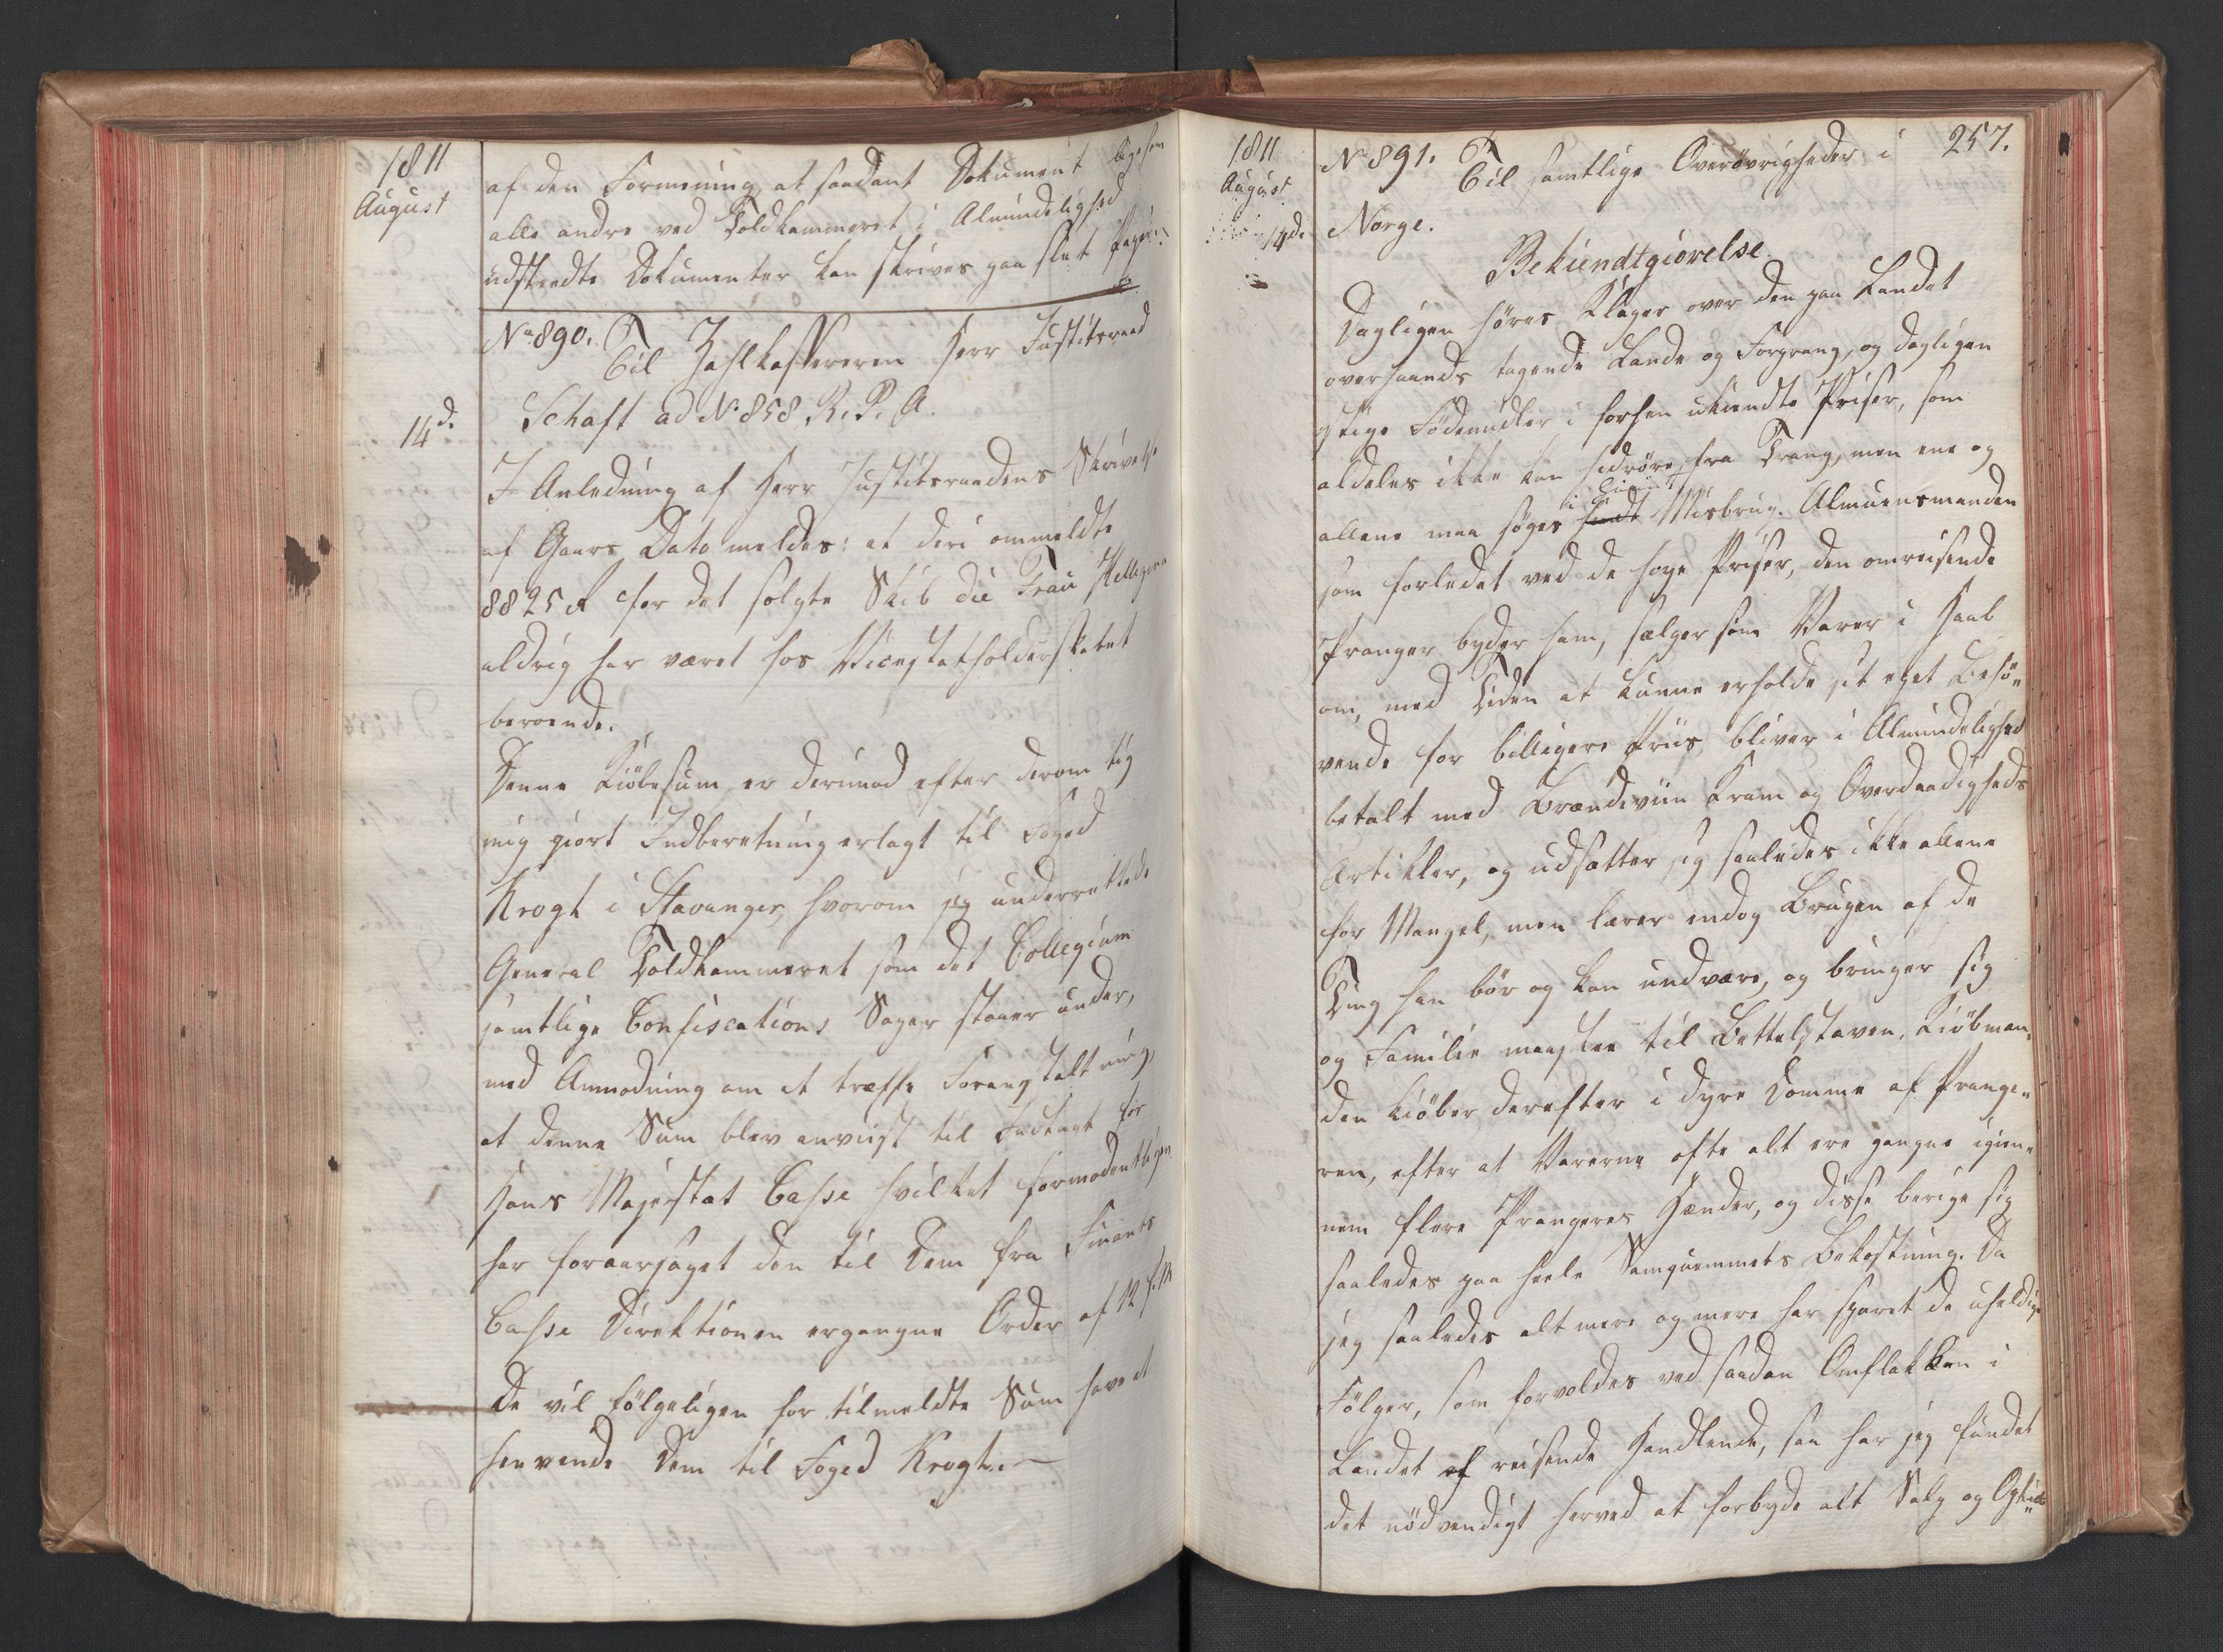 1811
August
af den Formening, at saadant Dokument ligesom
alle andre ved Toldkammeret i Almindelighed
udstædte Dokumenter kan skrives paa slet Papir.
No 890. Til Zahlkassereren Herr Justitsraad
14d.
Schaft ad No 858 R. P. A.
I Anledning af Herr Justitsraadens Skrivelse
af Gaars Dato meldes: at deri ommeldte
8825 R for det solgte Skib die Frau
aldrig har været hos Vicestatholderskabet
beroende.
Denne Kiöbesum er derimod efter derom til
mig giort Indberetning erlagt til Foged
Krogh i Stavanger, hvorom jeg underrettede
General Toldkammeret som det Collegium
samtlige Confiscations Sager staaer under,
med Anmodning om at træffe Foranstaltning,
at denne Sum blev anviist til Indtægt for
Hans Majestæt Casse hvilket formodentligen
har foraarsaget den til Dem fra Finants
Casse Direktionen ergangne Order af 12 f. M
De vil fölgeligen for tilmeldte Sum have at
henvende Dem til Foged Krogh.
1811
August
14d.
257.
No 891. Til samtlige Overövrigheder i
Norge.
Bekiendtgiörelse
Dagligen höres Klager over den paa Landet
overhaands tagende Lande og Forprang, og dagligen
stige Födemidler i forhen ukiendte Priser, som
aldeles ikke kan hidröre fra Trang, men ene og
allene maa söges i Misbrug. Almuesmanden
som forledet ved de høye Priser, den omreisende
Pranger byder ham, sælger sine Varer i Haab
om, med Tiden at kunne erholde sit eget Behö„
vende for billigere Priis, bliver i Almindelighed
betalt med Brændeviin Kram og Overdaadigheds
Artikler, og udsætter sig saaledes ikke allene
for Mangel, men lærer endog Brugen af de
Ting han bör og kan undvære, og bringer sig
og Familie maaskee til Bettelstaven. Kiöbman„
den kiöber derefter i dyre Domme af Prange„
ren, efter at Varerne ofte alt ere gangne igien„
nem flere Prangeres Hænder, og disse berige sig
saaledes paa heele Samqvemmets Bekostning. Da
jeg saaledes alt mere og mere har sporet de uheldige
Fölger, som forvoldes ved saadan Omflakken i
Landet af reisende Handlende, saa har jeg fundet
det nödvendigt herved at forbyde alt Salg og Opkiöb